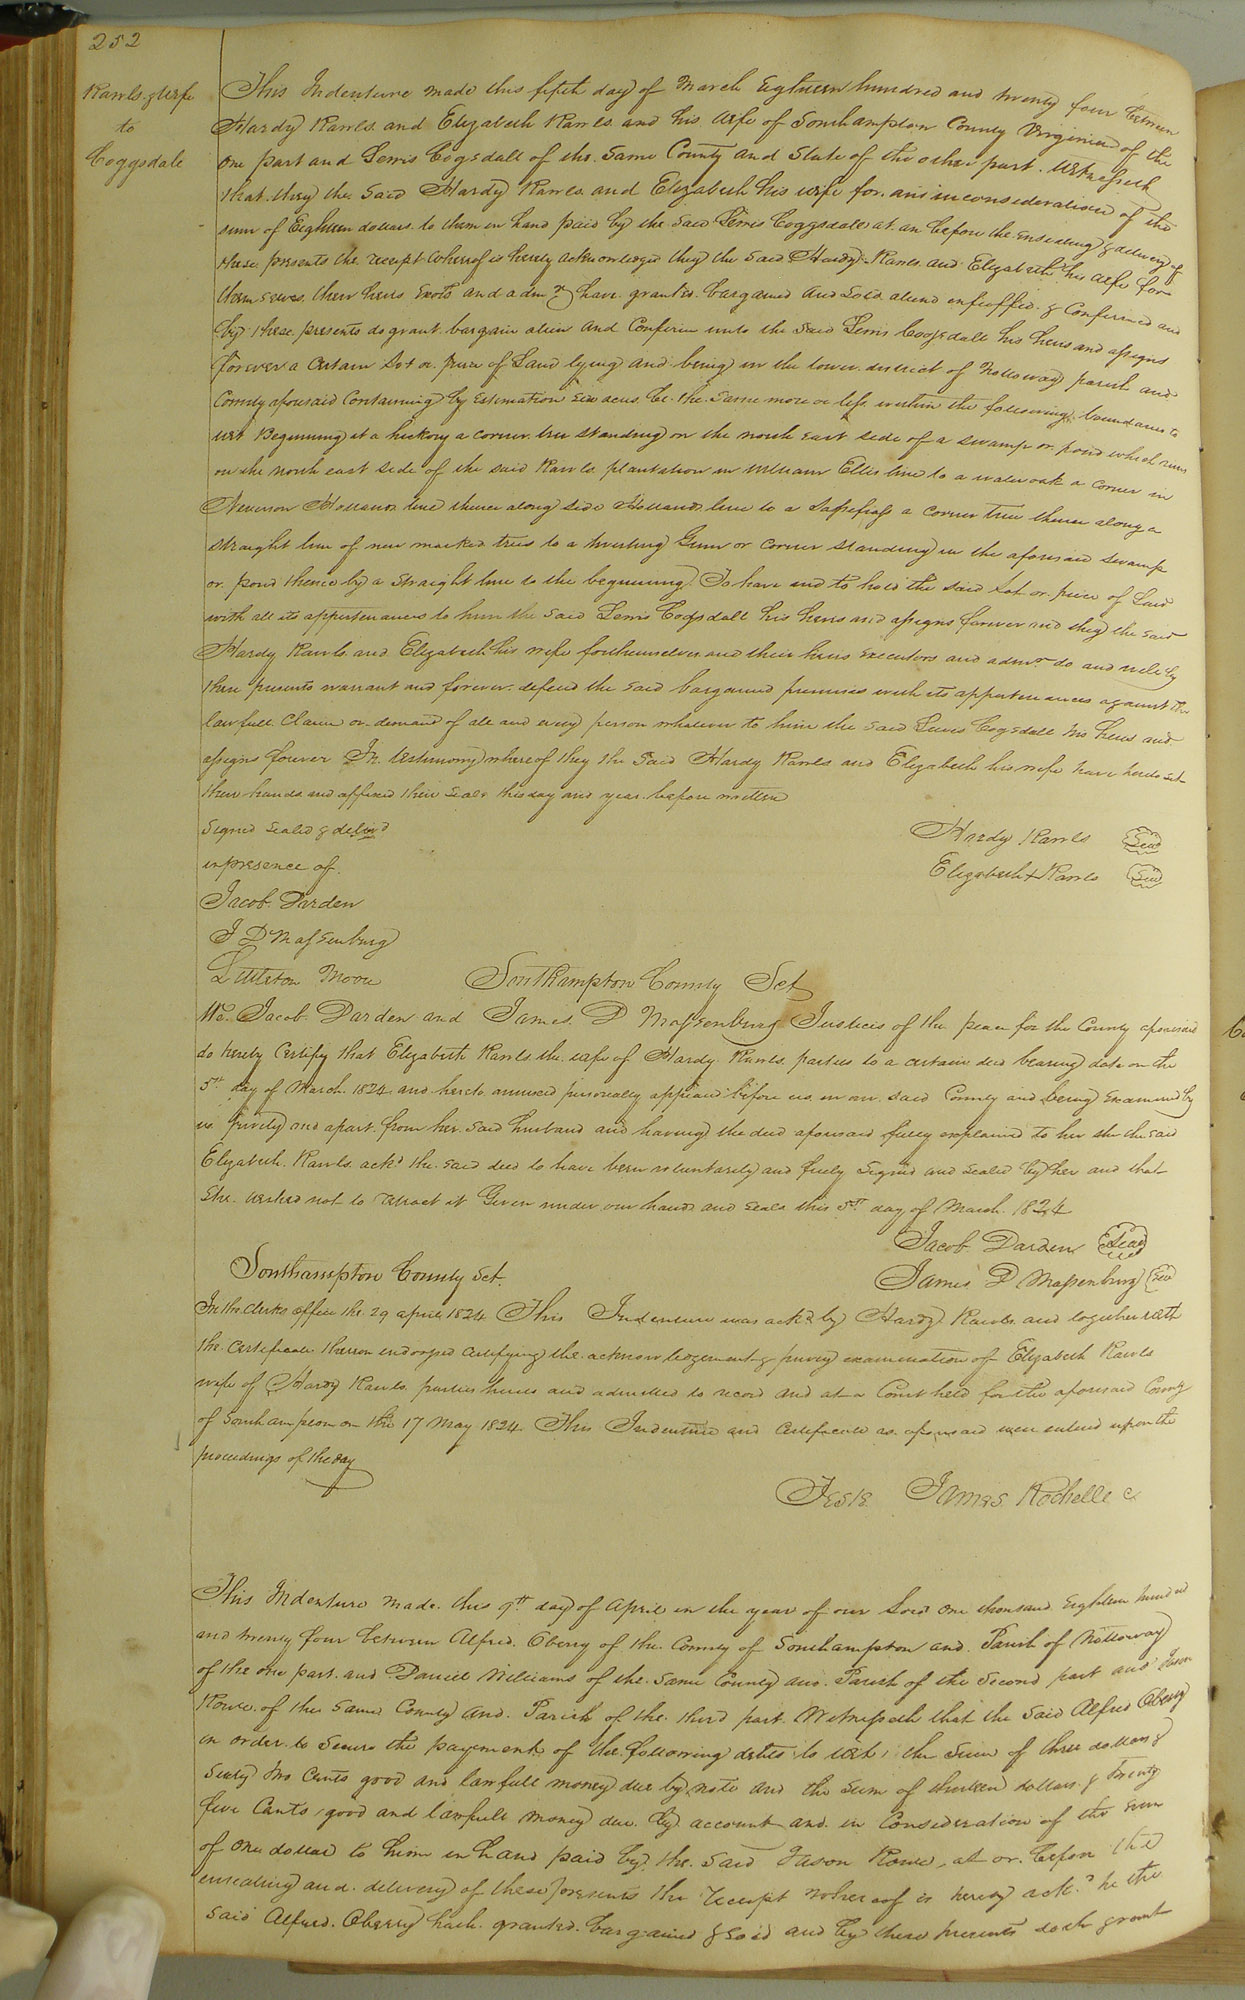 252
Rawls & Wife
to
Coggsdale
This Indenture made this fifth day of March Eighteen hundred and twenty four between
Hardy Rawls and Elizabeth Rawls and his wife of Southampton County Virginia of the
one part and Lewis Cogsdall of the Same County and State of the other part. Witnesseth
that they the Said Hardy Rawls and Elizabeth his wife for and in consideration of the
sum of Eighteen dollars to them in hand paid by the Said Lewis Coggsdale at an before the ensealing & delivery of
these presents the receipt whereof is hereby acknowledged they the Said Hardy Rawls and Elizabeth his wife for
themselves their heirs Exors and admrs have granted bargained and Sold aliend enfeoffed & Confirmed and
by these presents do grant bargain alien and Confirm unto the Said Lewis Cogsdall his heirs and assigns
forever a Certain Lot or piece of Land lying and being in the lower district of Nottoway parish and
County aforesaid Containing by Estimation Six acres be the Same more or less within the following boundaries to
wit Beginning at a hickory a corner tree standing on the north east side of a swamp or pond which runs
on the north east side of the said Rawls plantation in William Ellis line to a water oak a corner in
Neverson Hollands line thence along Said Hollands line to a Sassefrass a Corner tree thence along a
straight line of new marked trees to a Gum or Corner standing in the aforesaid swamp
or pond thence by a Straight line to the beginning. To have and to hold the said Lot or piece of Land
with all its appertenances to him the Said Lewis Cogsdall his heirs and assigns forever and they the Said
Hardy Rawls and Elizabeth his wife for themselves and their heirs Executors and admrs do and will by
these presents warrant and forever defend the said bargained premises with its appertenances against the
lawfull Claim or demand of all and every person whatever to him the Said Lewis Cogsdall his heirs and
assigns forever In testimony whereof they the Said Hardy Rawls and Elizabeth his wife have hereto set
their hands and affixed their Seals this day and year before written
Signed Sealed & delivd
in presence of
Hardy Rawls Seal
Elizabeth + Rawls Seal
Jacob Darden
J D Massenburg
Littleton Moore
Southampton County Sct
We Jacob Darden and James D Massenburg Justices of the peace for the County aforesaid
do hereby Certify that Elizabeth Rawls the wife of Hardy Rawls parties to a certain deed bearing date on the
5th day of March 1824 and hereto annexed personally appeard before us in our said County and being Examined by
us privily and apart from her said husband and having the deed aforesaid fully explained to her she the said
Elizabeth Rawls ackd the said deed to have been voluntarily and freely Signed and sealed by her and that
She wished not to retract it Given under our hands and Seals this 5th day of March 1824
Jacob Darden Seal
James D Massenburg Seal
Southampton County Sct.
In the Clerks office the 29 april 1824 This Indenture was ackd by Hardy Rawls and together with
the Certificate thereon endorsed Certifying the acknowledgement & privy examination of Elizabeth Rawls
wife of Hardy Rawls parties hereto and admitted to record and at a Court held for the aforesaid County
of Southampton on the 17 May 1824 This Indenture and Certificate as aforesaid were entered upon the
proceedings of the day
Teste James Rochelle C
This Indenture made this 9th day of April in the year of our Lord one thousand Eighteen hundred
and twenty four between Alfred Oberry of the County of Southampton and Parish of Nottoway
of the one part and Daniel Williams of the Same County and Parish of the Second part and Jason
Rowe of the Same County and Parish of the third part Witnesseth that the Said Alfred Oberry
in order to Secure the payement of the following debts to wit, the Sum of three dollars &
Sixty two Cents good and lawfull money due by note and the Sum of thirteen dollars & twenty
five Cents good and lawfull money due by account and in Consideration of the Sum
of one dollar to him in hand paid by the Said Jason Rowe, at or before the
ensealing and delivery of these presents the receipt whereof is hereby ackd he the
Said Alfred Oberry hath granted bargained & Sold and by these presents doth grant